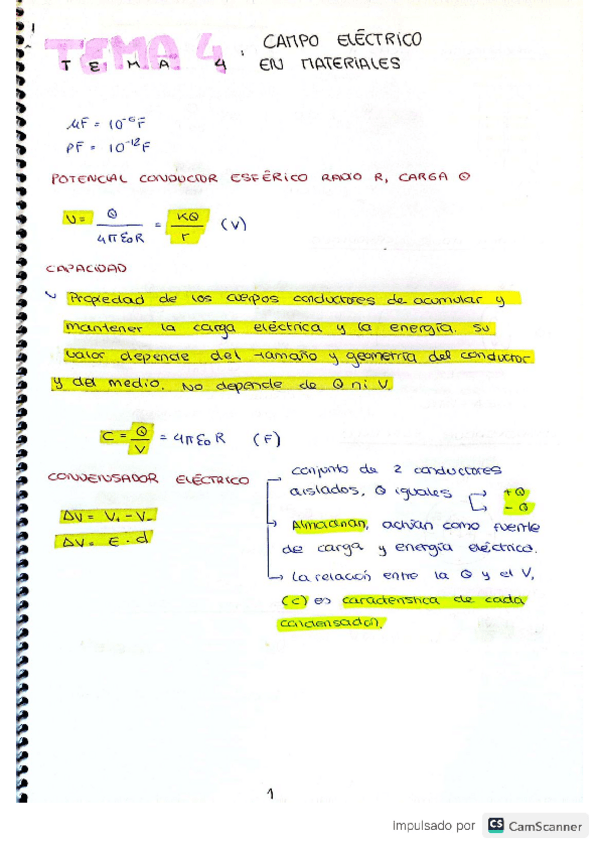 TEMA 4
TEMA 4: CAMPO ELÉCTRICO
EN MATERIALES
μF = 10⁻⁶F
PF = 10⁻¹²F
POTENCIAL CONDUCTOR ESFÉRICO RADIO R, CARGA Q
V = Q / 4πε₀R = KQ / r (V)
CAPACIDAD
Propiedad de los cuerpos conductores de acumular y
mantener la carga eléctrica y la energía. Su
valor depende del tamaño y geometría del conductor
y del medio. No depende de Q ni V.
C = Q / V = 4πε₀R (F)
CONDENSADOR ELÉCTRICO
ΔV = V₊ - V₋
ΔV = E · d
conjunto de 2 conductores
aislados, Q iguales +Q
-Q
Almacenan, actúan como fuente
de carga y energía eléctrica.
La relación entre la Q y el V,
(C) es característica de cada
condensador.
1
Impulsado por CS CamScanner